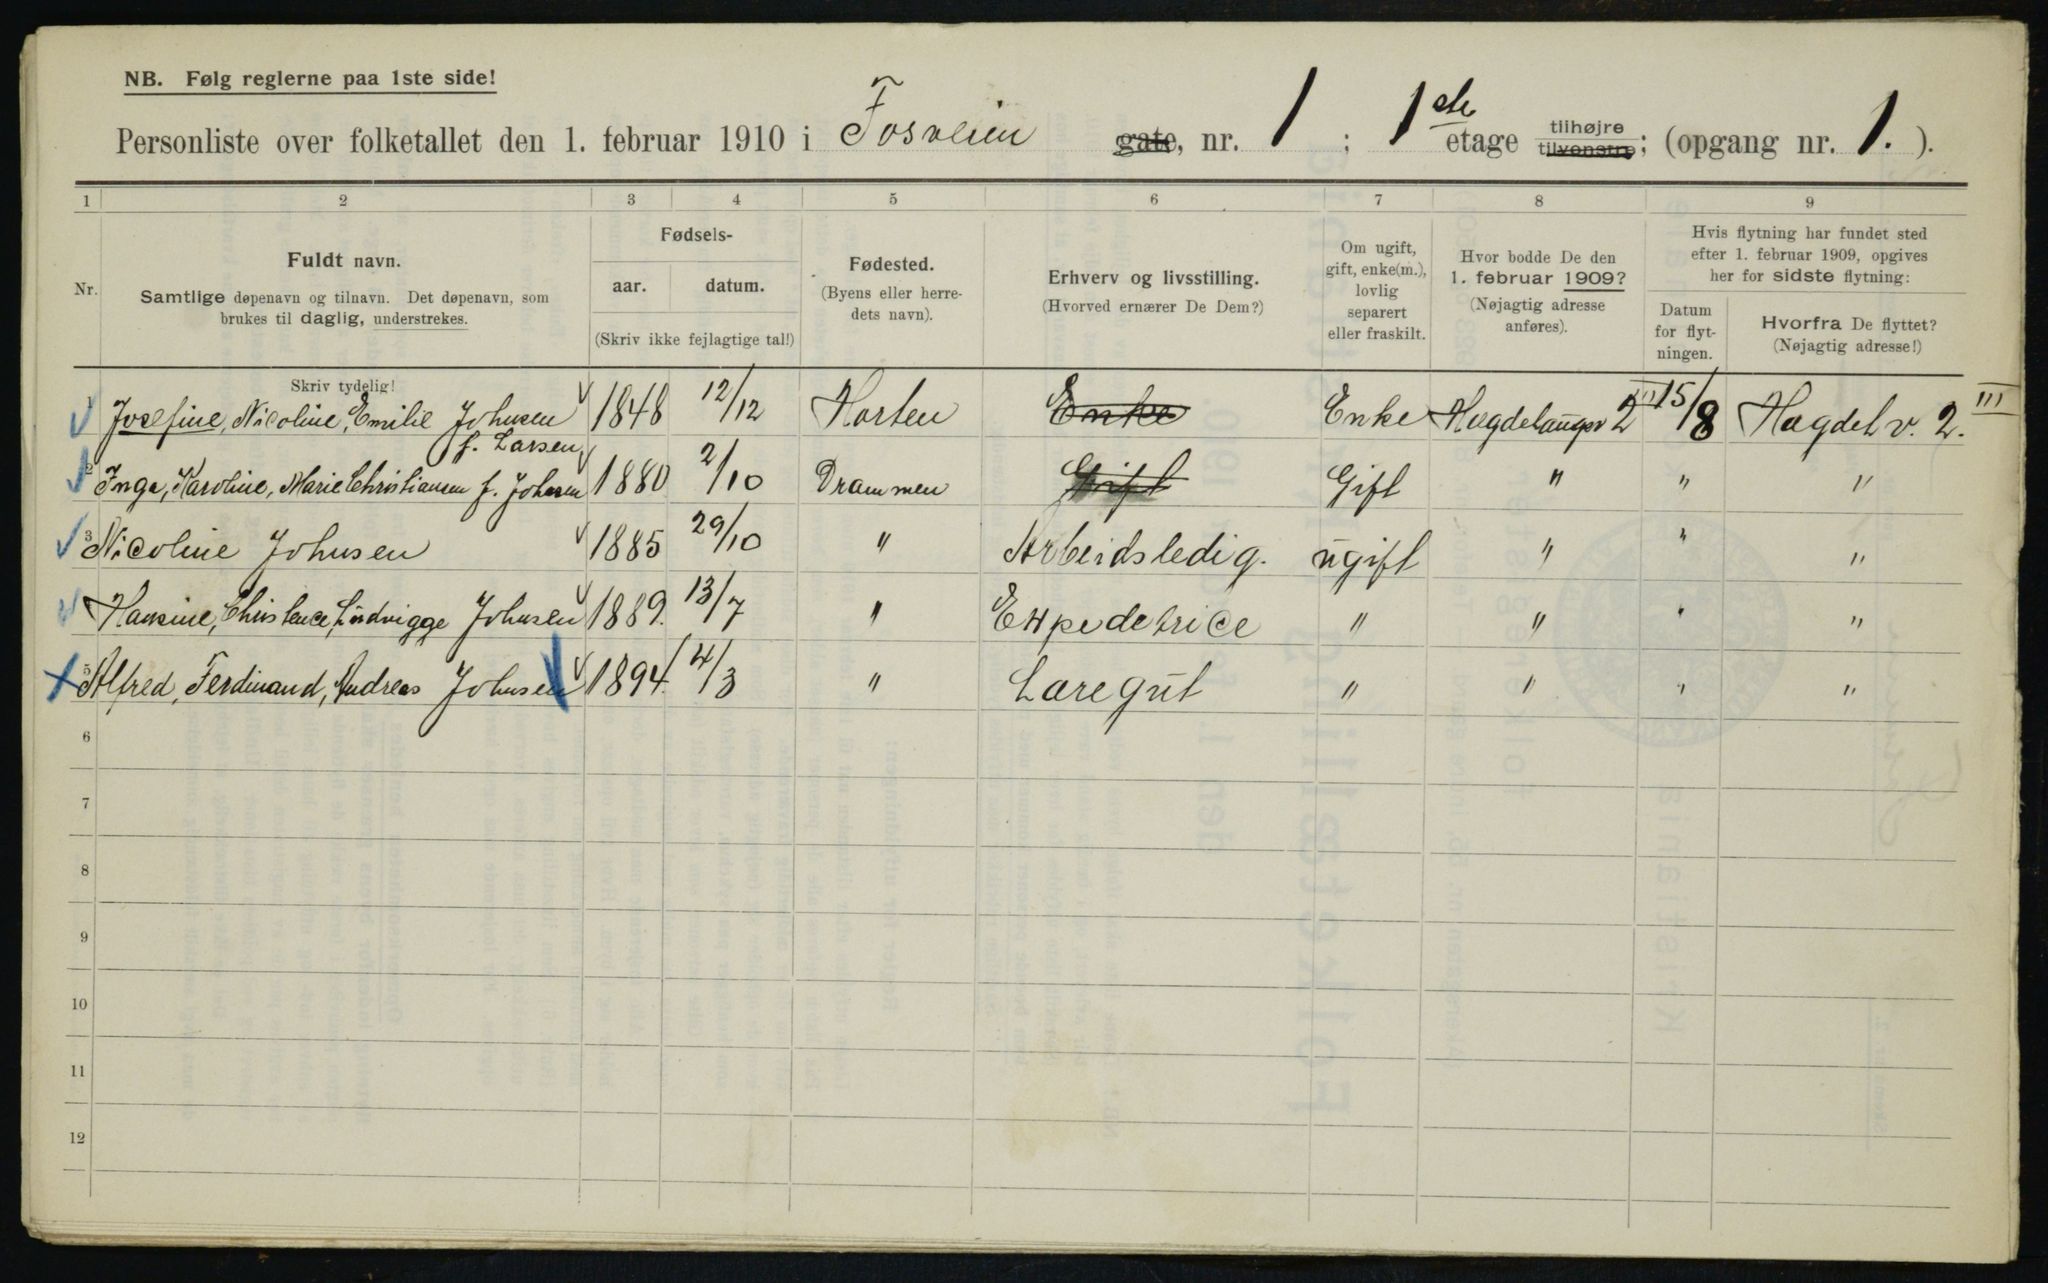 NB. Følg reglerne paa 1ste side!
Personliste over folketallet den 1. februar 1910 i Fosveien gate, nr. 1 ; 1ste etage tilhøjre tilvenstre; (opgang nr. 1. ).
1 2 3 4 5 6 7 8 9
Nr.
Fuldt navn.
Samtlige døpenavn og tilnavn. Det døpenavn, som
brukes til daglig, understrekes.
Skriv tydelig!
Fødsels-
aar. datum.
(Skriv ikke fejlagtige tal!)
Fødested.
(Byens eller herre-
dets navn).
Erhverv og livsstilling.
(Hvorved ernærer De Dem?)
Om ugift,
gift, enke(m.),
lovlig
separert
eller fraskilt.
Hvor bodde De den
1. februar 1909?
(Nøjagtig adresse
anføres).
Hvis flytning har fundet sted
efter 1. februar 1909, opgives
her for sidste flytning:
Datum
for flyt-
ningen.
Hvorfra De flyttet?
(Nøjagtig adresse!)
1 Josefine, Nicoline, Emilie Johnsen 1848 12/12 Horten Enke Enke 2 III 15/8 Hagdel v. 2. III
f. Larsen
2 Inga, Karoline, Marie Christiansen f. Johnsen 1880 2/10 Drammen Gift Gift " " "
3 Nicoline Johnsen 1885 29/10 " Arbeidsledig. ugift " " "
4 Hansine, Christence, Ludvigge Johnsen 1889. 13/7 " Expedetrice " " " "
5 Alfred, Ferdinand, Andreas Johnsen 1894. 4/3 " Læregut " " " "
6
7
8
9
10
11
12